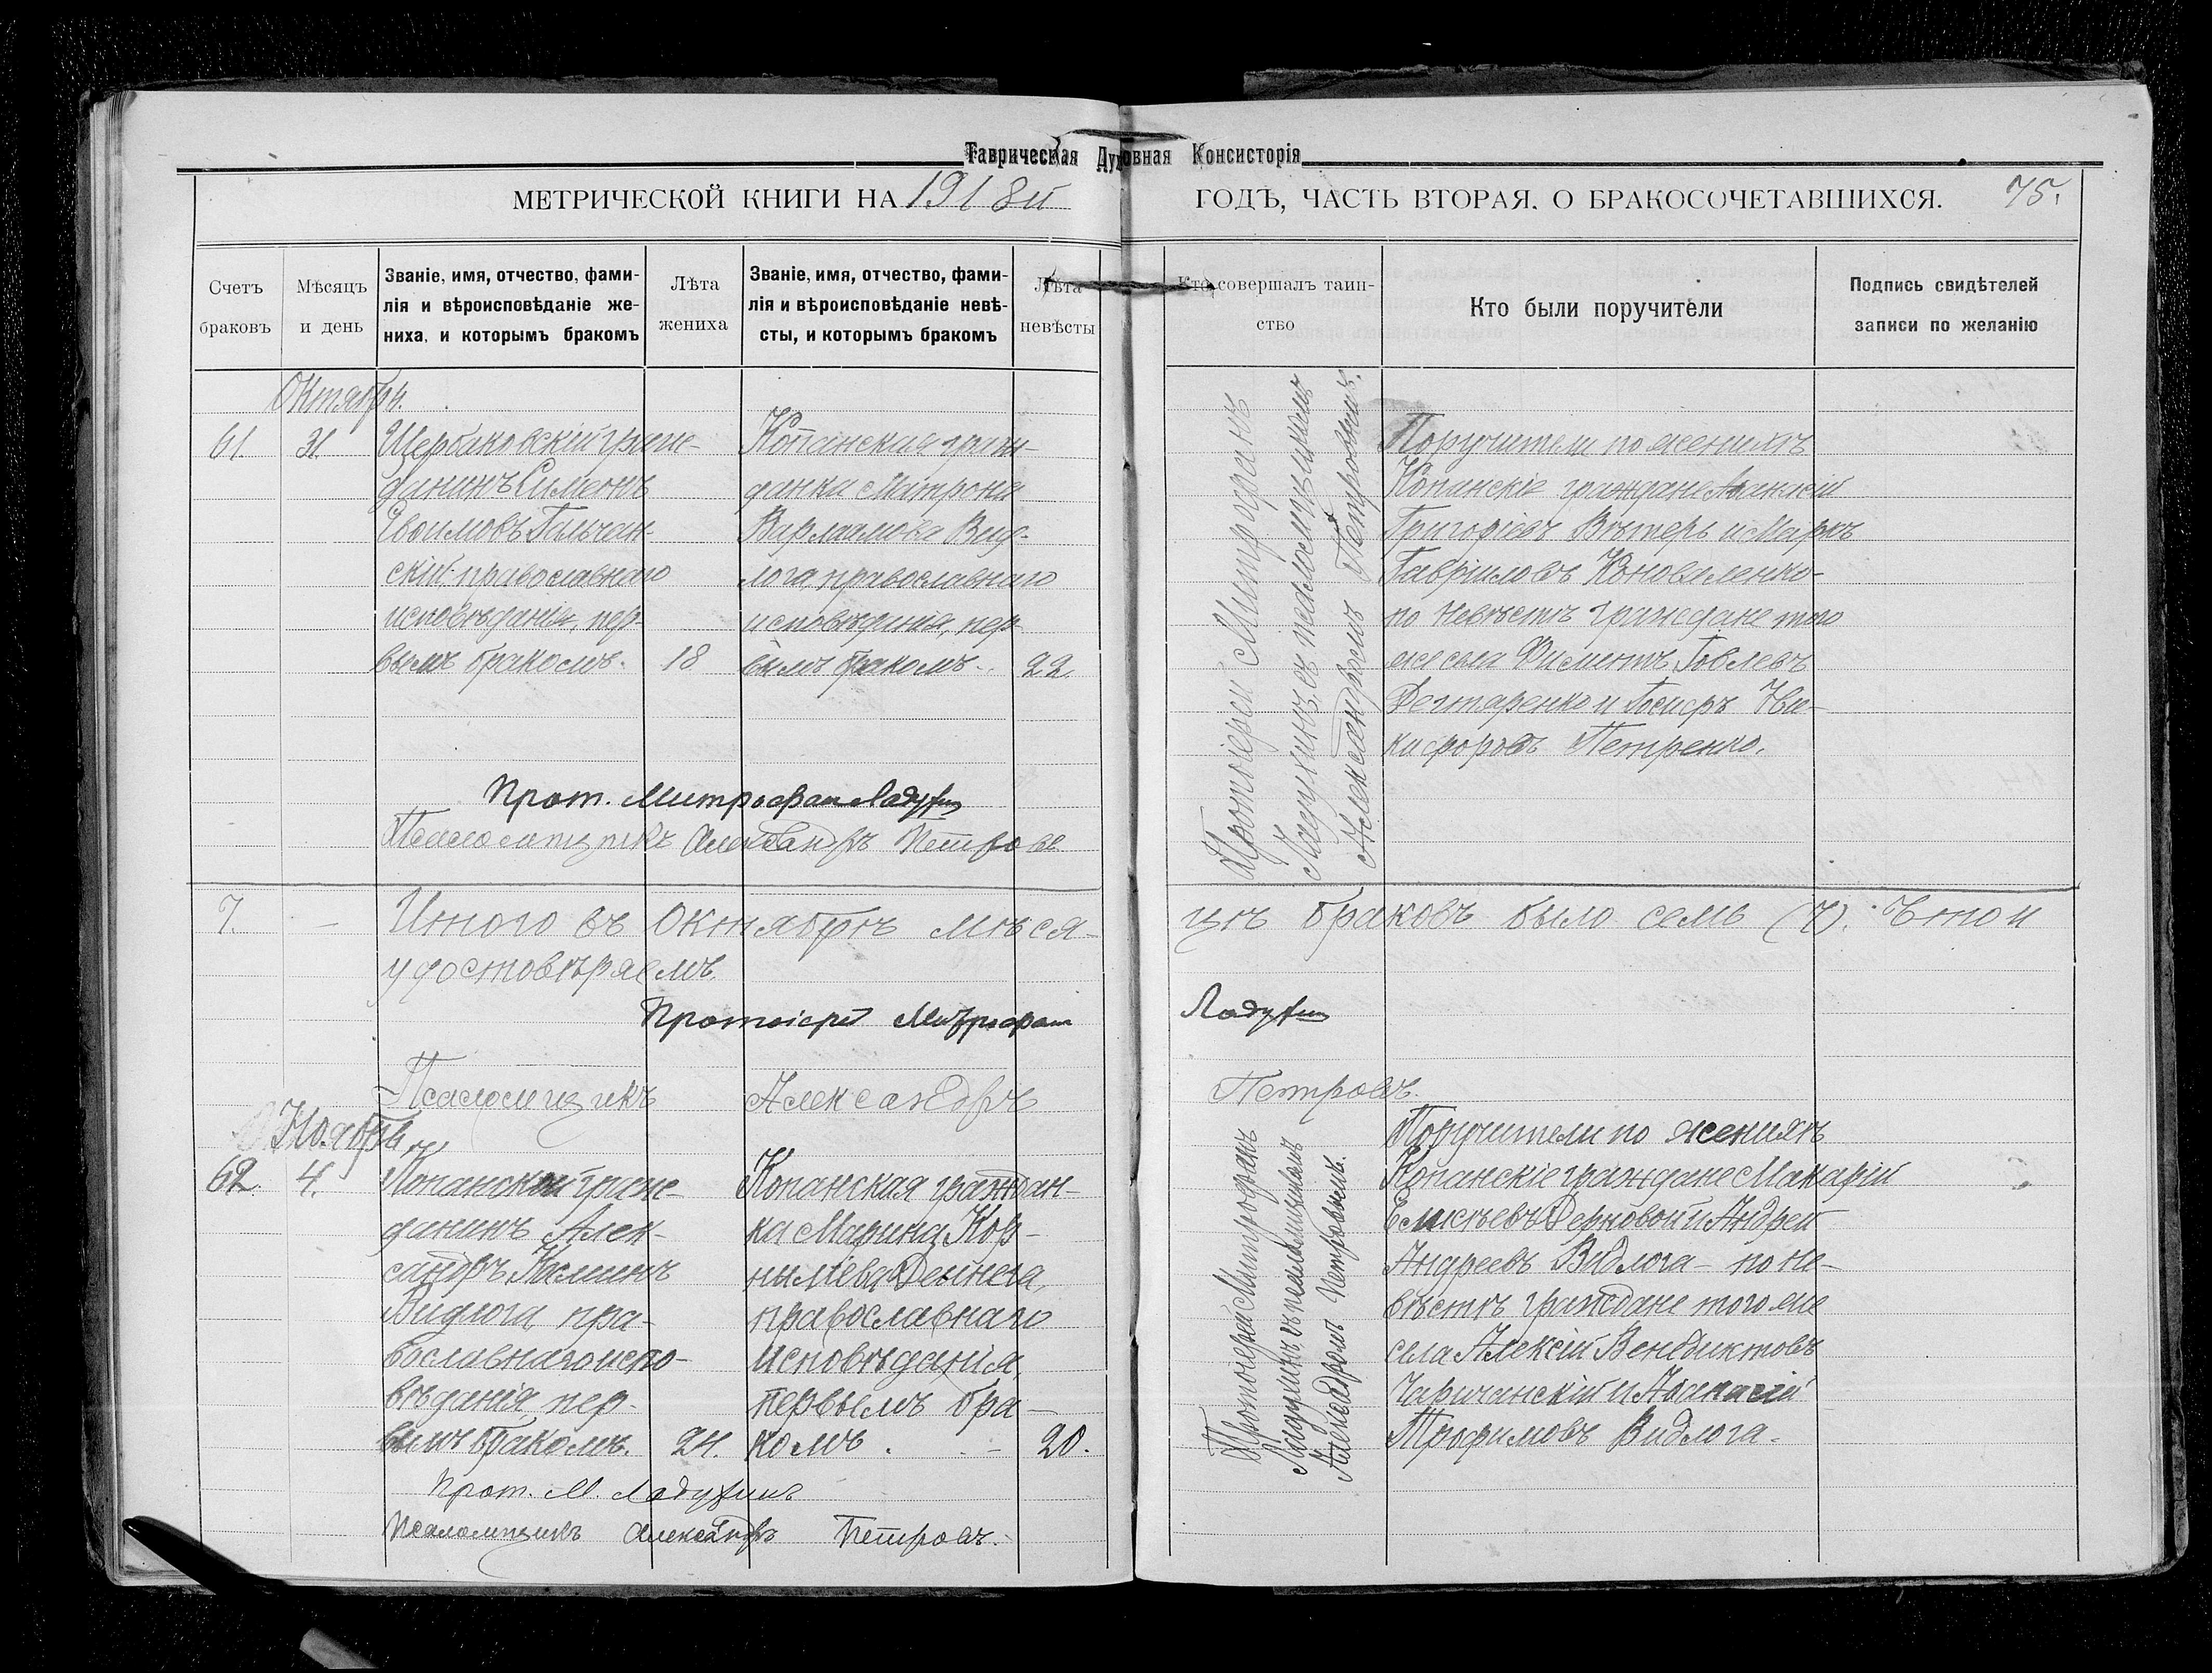 Таврическая Духовная Консисторія
МЕТРИЧЕСКОЙ КНИГИ НА 1918й ГОДЪ, ЧАСТЬ ВТОРАЯ, О БРАКОСОЧЕТАВШИХСЯ. 75.
Счетъ
браковъ
Мѣсяцъ
и день
Званіе, имя, отчество, фами-
лія и вѣроисповѣданіе же-
ниха, и которымъ бракомъ
Лѣта
жениха
Званіе, имя, отчество, фами-
лія и вѣроисповѣданіе невѣ-
сты, и которымъ бракомъ
Лѣта
невѣсты
Кто совершалъ таин-
ство
Кто были поручители
Подпись свидѣтелей
записи по желанію
Октябрь.
61.
31.
Щербаковскій граж-
данинъ Симеонъ
Гальчан-
скій православнаго
исповѣданія, пер-
вымъ бракомъ.
18
Копанская граж-
данка Матрона
Варлаамова Вид-
лога, православнаго
исповѣданія, пер-
вымъ бракомъ.
22.
Протоіерей Митрофанъ
Ладухинъ, съ псаломщикомъ
Александромъ Петровымъ.
Поручители по женихѣ
Копанскіе граждане Аѳанасій
Григоріевъ Вѣтеръ и Маркъ
Гавріиловъ Коноваленко-
по невѣстѣ граждане того
же села Филиппъ Іовлевъ
Дегтаренко и Іосифъ Ни-
кифоровъ Петренко.
Прот. Митрофан Ладухин
Псаломщикъ Александръ Петровъ
7. — Итого въ Октябрѣ мѣся-
цѣ браковъ было семь (7). Въ томъ
удостовѣряемъ.
Протоіерей Митрофан Ладухин
Псаломщикъ Александръ Петровъ.
Ноябрь
62.
4.
Копанскій граж-
данинъ Алек-
сандръ Косминъ
Видлога, пра-
вославнаго испо-
вѣданія, пер-
вымъ бракомъ.
24.
Копанская граждан-
ка Марина Кор-
ниліева Дейнега,
православнаго
исповѣданія,
первымъ бра-
комъ.
20.
Протоіерей Митрофанъ
Ладухинъ съ псаломщикомъ
Александромъ Петровымъ.
Поручители по женихѣ
Копанскіе граждане Макарій
Елисѣевъ Дерновой и Андрей
Андреевъ Видлога - по не-
вѣстѣ граждане того же
села Алексій Венедиктовъ
Чаричанскій и Аѳанасій
Трофимовъ Видлога.
Прот. М. Ладухинъ
Псаломщикъ Александръ Петровъ.